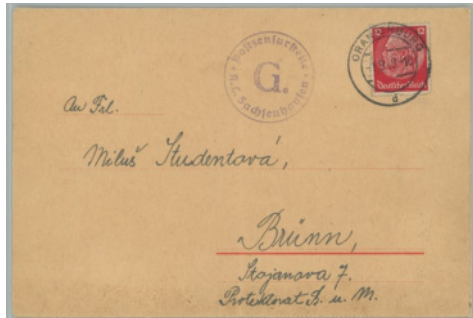 Postzensurstelle
K.L. Sachsenhausen
G.
ORANIENBURG
d
12 12
Deutsches Reich
An Frl.
Miluš Studentová,
Brünn,
Stojanova 7.
Protektorat B. u. M.